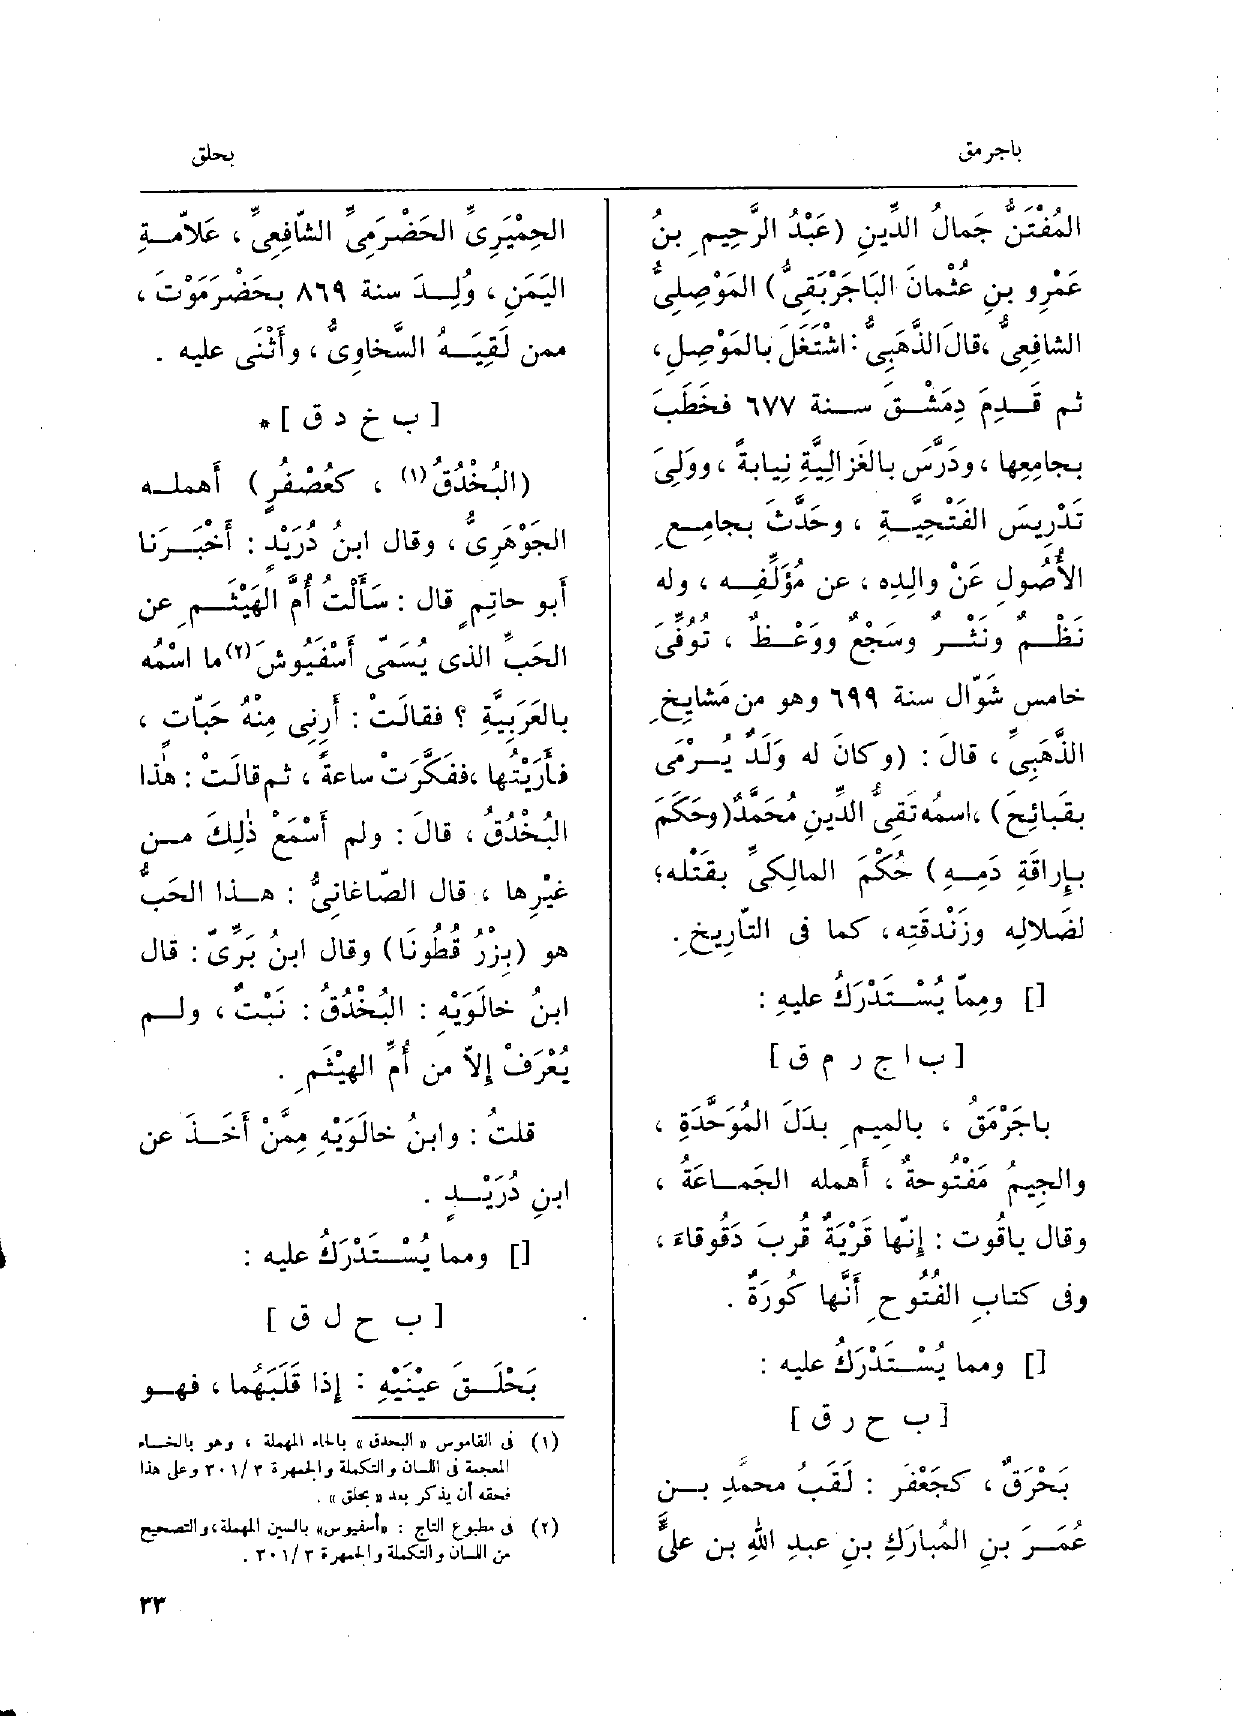 باجرمق
بحلق
المُفْتَنُّ جَمالُ الدِّينِ (عَبْدُ الرَّحِيمِ بنُ
عَمْرِو بنِ عُثْمانَ البَاجَرْبَقِىُّ) المَوْصِلِىُّ
الشافِعِىُّ ،قالَ الذَّهَبِىُّ : اشْتَغَلَ بالمَوْصِلِ،
ثم قَـدِمَ دِمَشْـقَ سـنة ٦٧٧ فخَطَبَ
بجامِعِها ، ودَرَّسَ بالغَزالِيَّةِ نِيابةً ، ووَلِىَ
تَدْرِيسَ الفَتْحِيَّـةِ ، وحَدَّثَ بجامِـعِ
الأُصُولِ عَنْ والِدِه ، عن مُؤَلِّفِـه ، وله
نَظْـمٌ ونَثْـرٌ وسَجْعٌ ووَعْـظٌ ، تُوُفِّىَ
خامس شَوّال سنة ٦٩٩ وهو من مَشايِخِ
الذَّهَبِىِّ ، قالَ : (وكانَ له وَلَدٌ يُـرْمَى
بقَبائِحَ) ،اسمُه تَقِىُّ الدِّينِ مُحَمَّدٌ(وحَكَمَ
بإِراقَةِ دَمِـهِ) حُكْمَ المالِكِىِّ بقَتْلِه؛
لضَلالِه وزَنْدقَتِه، كما فى التّارِيخِ .
[] ومِمّا يُسْـتَدْرَكُ عليهِ :
[ ب ا ج ر م ق ]
باجَرْمَقُ ، بالمِيمِ بدَلَ المُوَحَّدَةِ ،
والجِيمُ مَفْتُوحةٌ ، أَهمله الجَمـاعَةُ ،
وقال ياقُوت : إِنّها قَرْيَةٌ قُربَ دَقُوقاءَ،
وفى كتابِ الفُتُوحِ أَنَّها كُورَةٌ .
[] ومما يُسْـتَدْرَكُ عليه :
[ ب ح ر ق ]
بَحْرَقٌ ، كجَعْفَر : لَقَبُ محمدِ بـن
عُمَـرَ بنِ المُبارَكِ بنِ عبدِ اللهِ بن علىٍّ
الحِمْيَرِىِّ الحَضْرَمِىِّ الشّافِعِىِّ ، عَلاّمَـةِ
اليَمَنِ ، وُلِـدَ سنة ٨٦٩ بحَضْرَمَوْتَ ،
ممن لَقِيَـهُ السَّخاوِىُّ ، وأَثْنَى عليه .
[ ب خ د ق ]*
(البُخْدُقُ(١) ، كعُصْفُرٍ) أَهملـه
الجَوْهَرِىُّ ، وقال ابنُ دُرَيْدٍ : أَخْبَـرَنا
أَبو حاتِمٍ قال : سَأَلْتُ أُمَّ الهَيْثَـمِ عن
الحَبِّ الذى يُسَمَّى أَسْفَيُوشَ(٢)ما اسْمُه
بالعَرَبِيَّةِ ؟ فقالَتْ : أَرِنِى مِنْهُ حَبّاتٍ ،
فأَرَيْتُها ،ففَكَّرَتْ ساعةً ، ثم قالَتْ : هٰذا
البُخْدُقُ ، قالَ : ولم أَسْمَعْ ذٰلِكَ مـن
غيْرِها ، قال الصّاغانِىُّ : هـذا الحَبُّ
هو (بِزْرُ قُطُونَا) وقال ابنُ بَرِّىّ : قال
ابنُ خالَوَيْهِ : البُخْدُقُ : نَبْتٌ ، ولـم
يُعْرَفْ إِلاّ من أُمِّ الهيْثَمِ .
قلتُ : وابنُ خالَوَيْهِ مِمَّنْ أَخَـذَ عن
ابنِ دُرَيْـدٍ .
[] ومما يُسْـتَدْرَكُ عليه :
[ ب ح ل ق ]
بَحْلَـقَ عيْنَيْهِ : إِذا قَلَبَهُما ، فهـو
(١) فى القاموس « البحدق » بالحاء المهملة ، وهو بالخـاء
المعجمة فى اللسان والتكملة والجمهرة ٣٠١/٣ وعلى هذا
فحقه أن يذكر بعد « بحلق » .
(٢) فى مطبوع التاج : «أسفيوس» بالسين المهملة، والتصحيح
من اللسان والتكملة والجمهرة ٣٠١/٣ .
٣٣